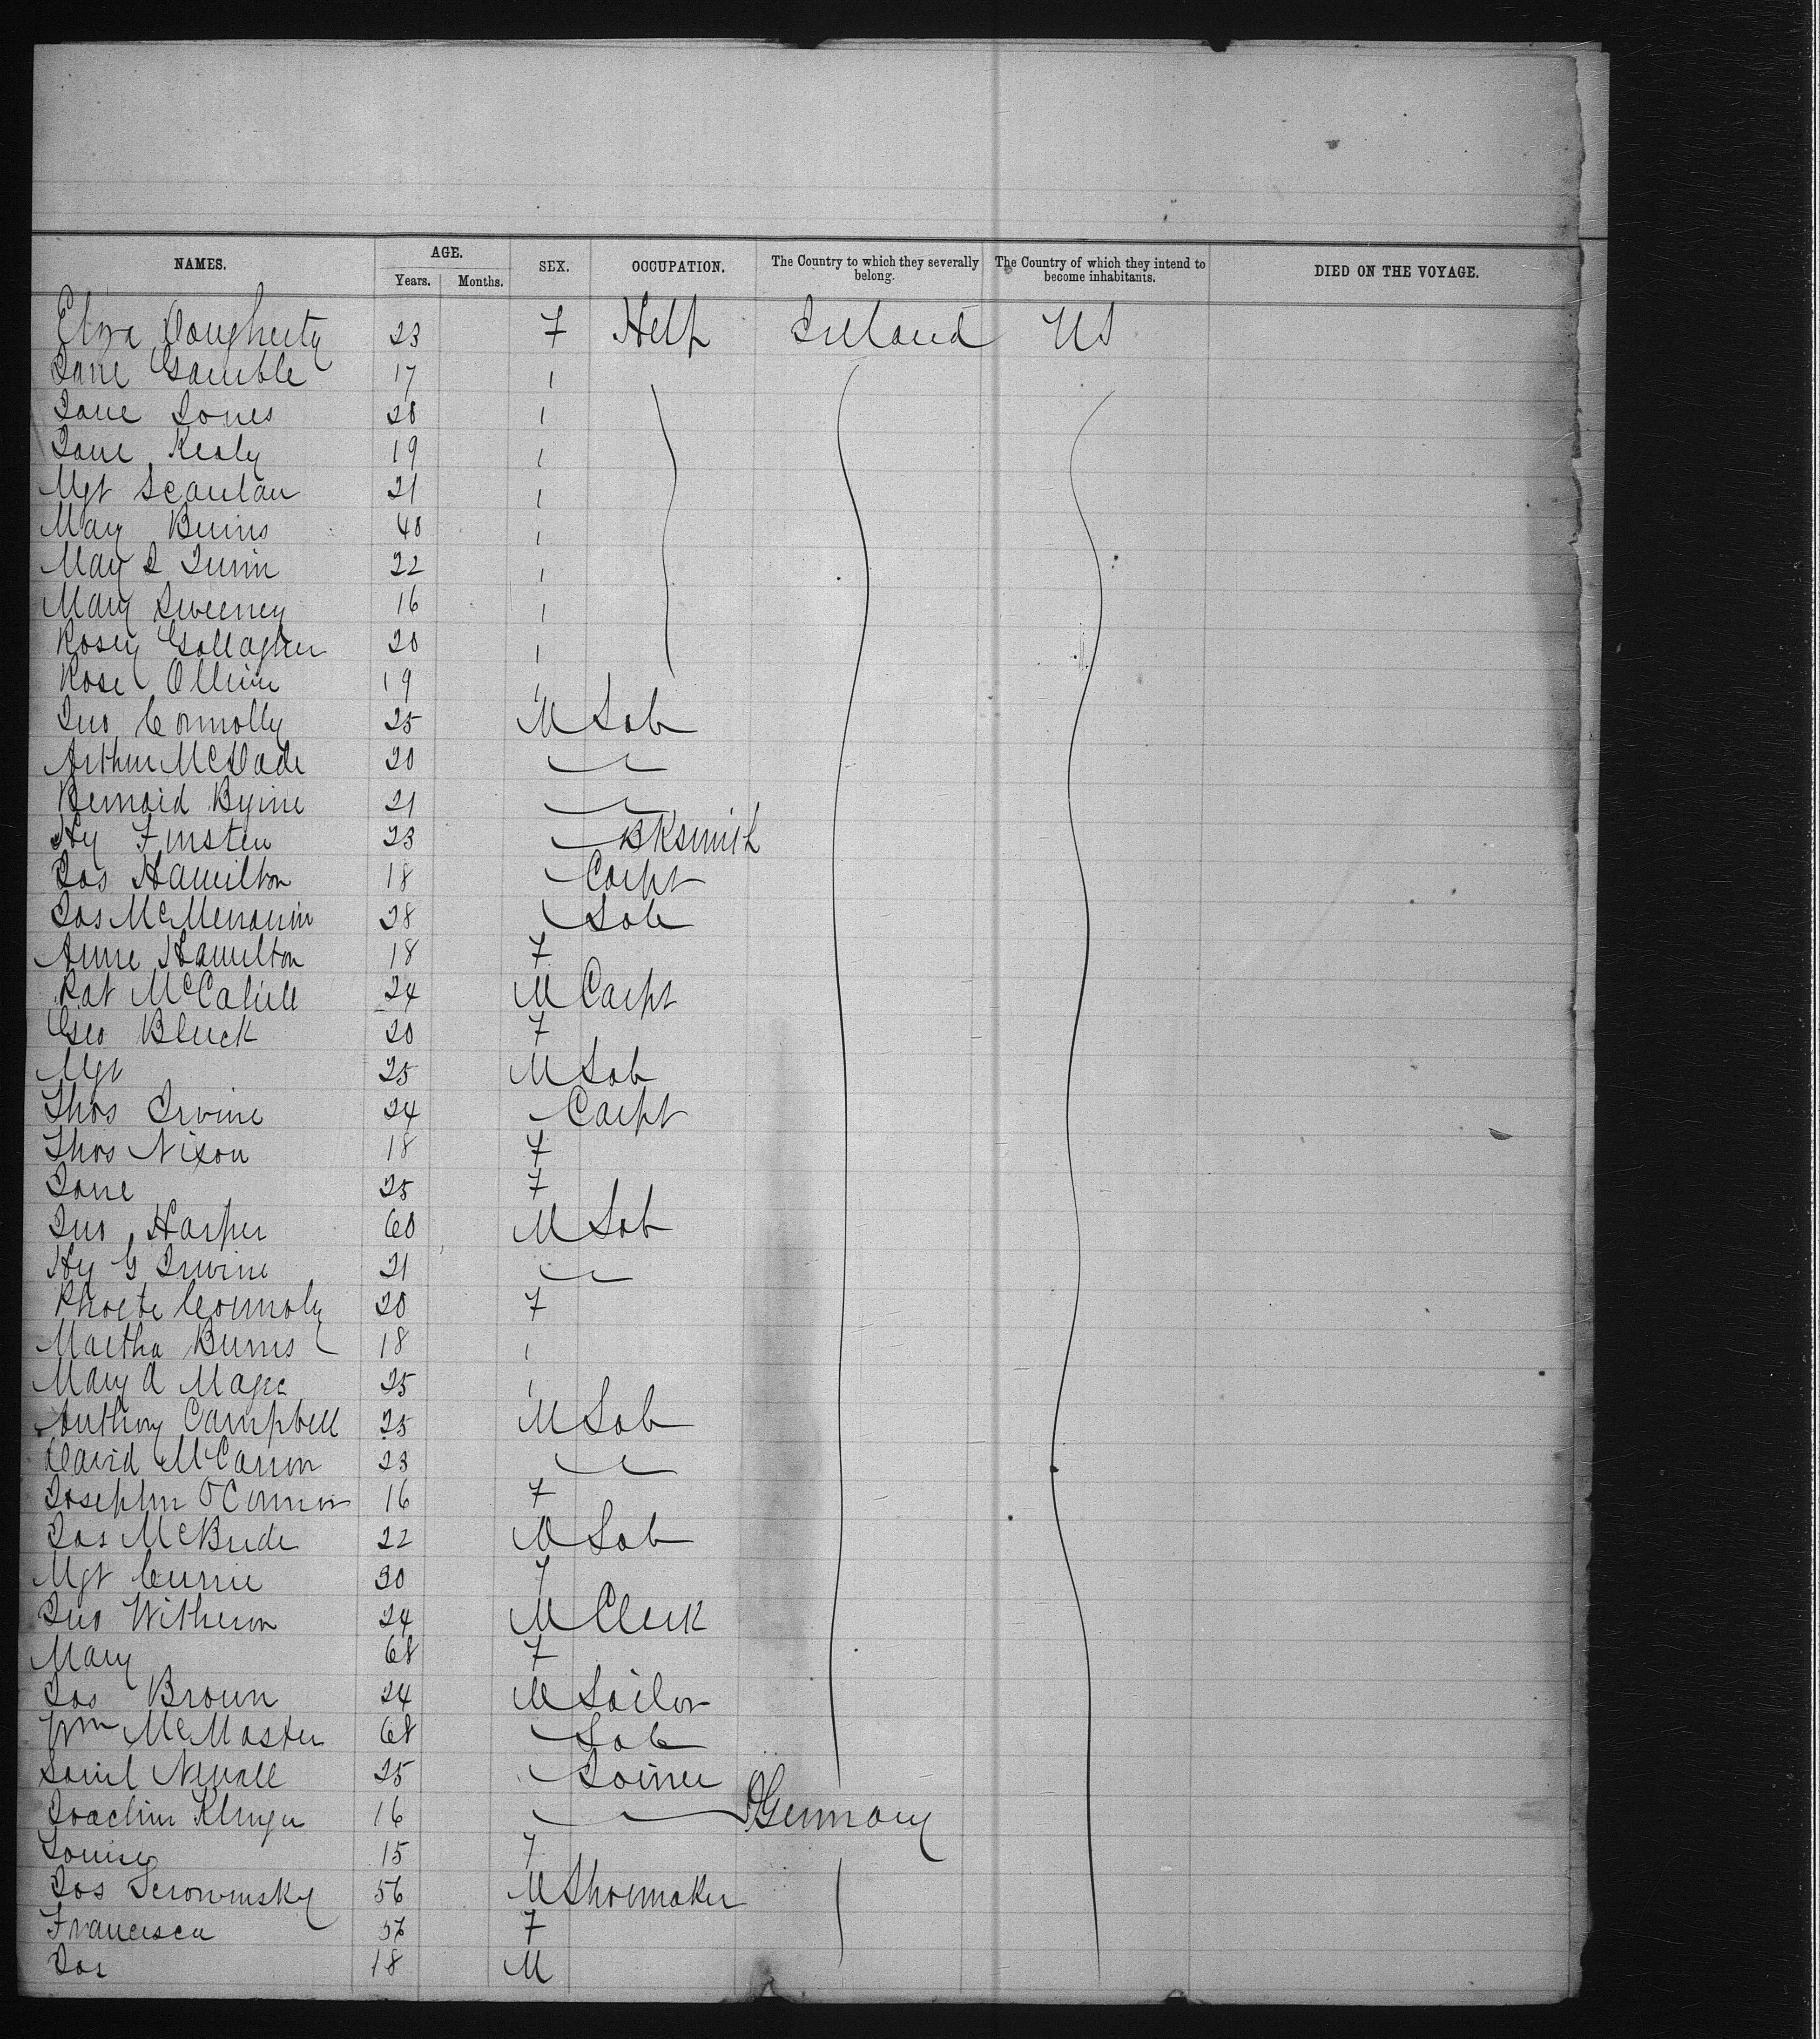 NAMES. AGE. SEX. OCCUPATION. The Country to which they severally belong. The Country of which they intend to become inhabitants. DIED ON THE VOYAGE.
Years. Months.
Eliza Dougherty 23 F Help Ireland US
Jane Gamble 17 "
Jane Jones 28 "
Jane Kealy 19 "
Mgt Scanlan 21 "
Mary Burns 40 "
Mary J 22 "
Mary Sweeney 16 "
Rosey Gallagher 20 "
Rose 19 "
Jno Connolly 25 M Lab
Arthur McDade 20
Bernard Byrne 21
Hy 23 BKsmith
Jas Hamilton 18 Carpt
Jas McMenamin 28 Lab
Anne Hamilton 18 F
Pat McCahill 24 M Carpt
Geo Black 20 F
Mgt 25 M Lab
Thos Irvine 24 Carpt
Thos Nixon 18 F
Jane 25 F
Jno Harper 60 M Lab
Hy G Irvine 21
Phoebe Connoly 20 F
Martha Burns 18 "
Mary A Magee 25 "
Anthony Campbell 25 M Lab
David McCarron 23
Josephine O'Connor 16 F
Jas McBride 22 M Lab
Mgt Currie 30 F
Jno Witheron 24 M Clerk
Mary 68 F
Jas Brown 24 M Sailor
Wm McMaster 68 Lab
Saml Newall 25 Joiner
Joachim Klinger 16 Germany
Louise 15 F
Jos 56 M Shoemaker
Francisca 56 F
Jos 18 M